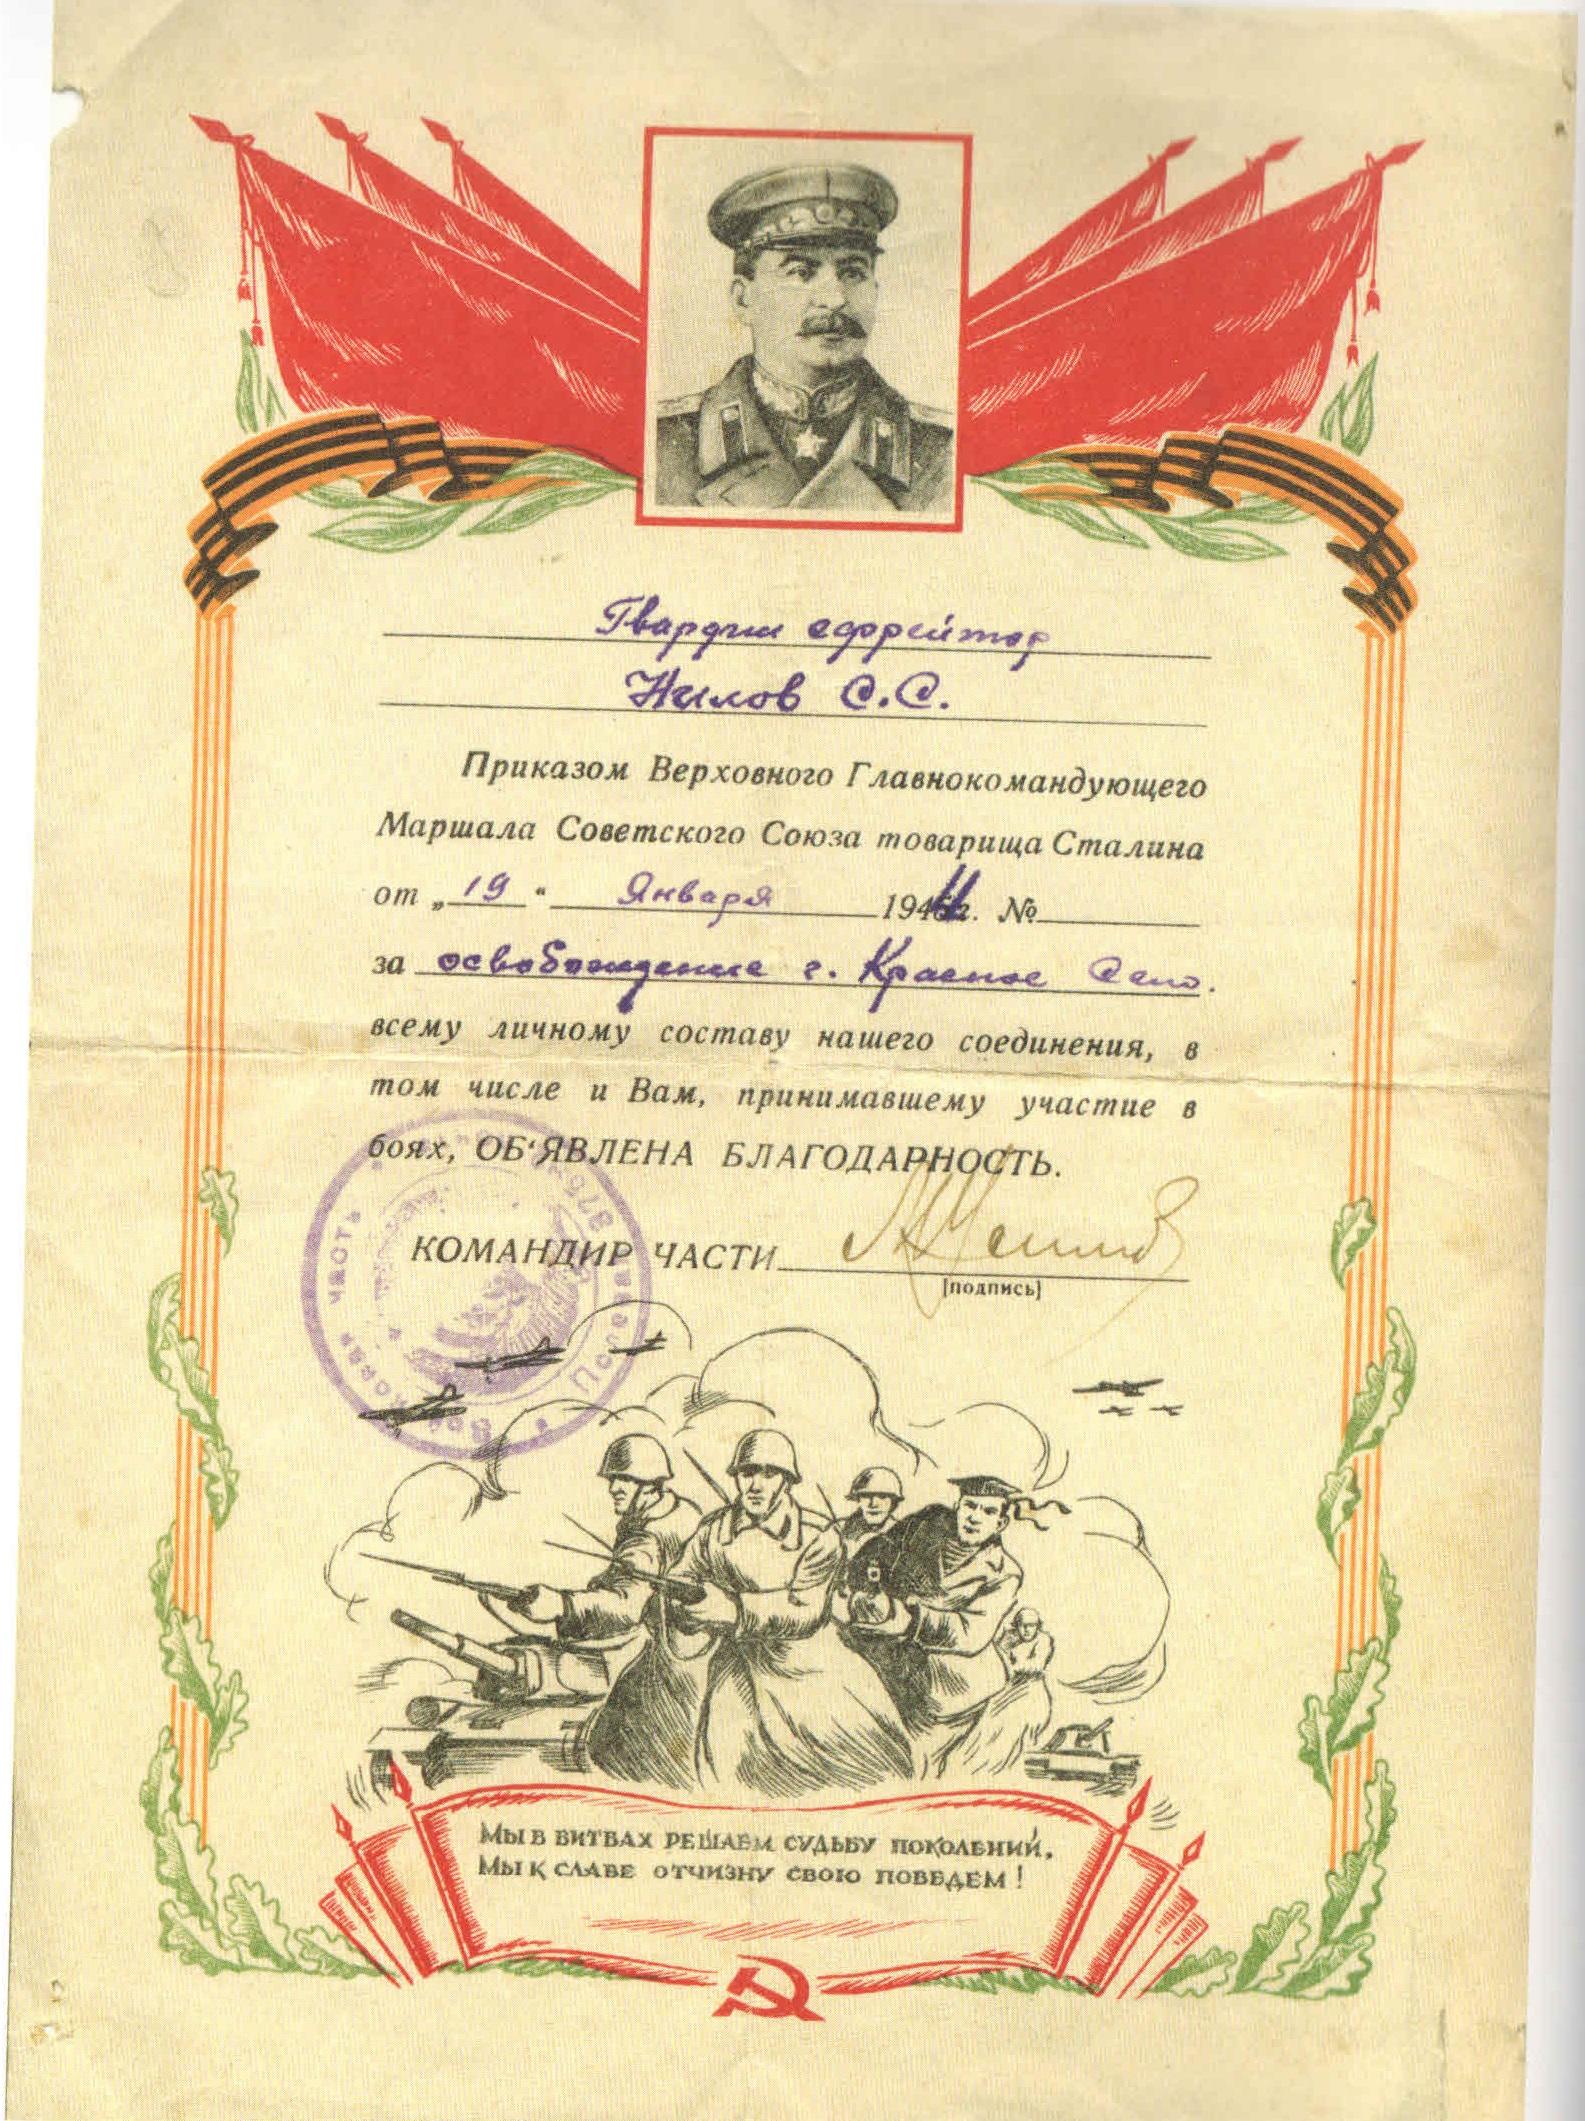 Гвардии ефрейтор
Нилов С.С.
Приказом Верховного Главнокомандующего
Маршала Советского Союза товарища Сталина
от „19“ Января 1944г. №
за освобождение г. Красное Село.
всему личному составу нашего соединения, в
том числе и Вам, принимавшему участие в
боях, ОБ'ЯВЛЕНА БЛАГОДАРНОСТЬ.
КОМАНДИР ЧАСТИ
[подпись]
Войсковая часть Полевая
МЫ В БИТВАХ РЕШАЕМ СУДЬБУ ПОКОЛЕНИЙ,
МЫ К СЛАВЕ ОТЧИЗНУ СВОЮ ПОВЕДЕМ!